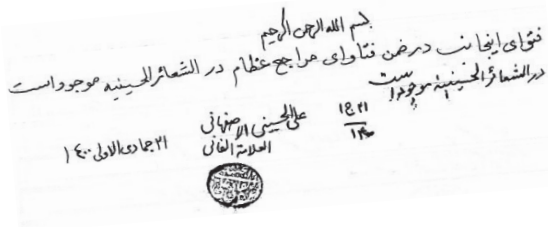 بسم الله الرحمن الرحیم
فتوای اینجانب در ضمن فتاوای مراجع عظام در الشعائر الحسینیه موجود است
در الشعائر الحسینیة موجود است
علی الحسینی الاصفهانی
العلامة الفانی
۲۱ جمادی الاولی ۱۴۰۰